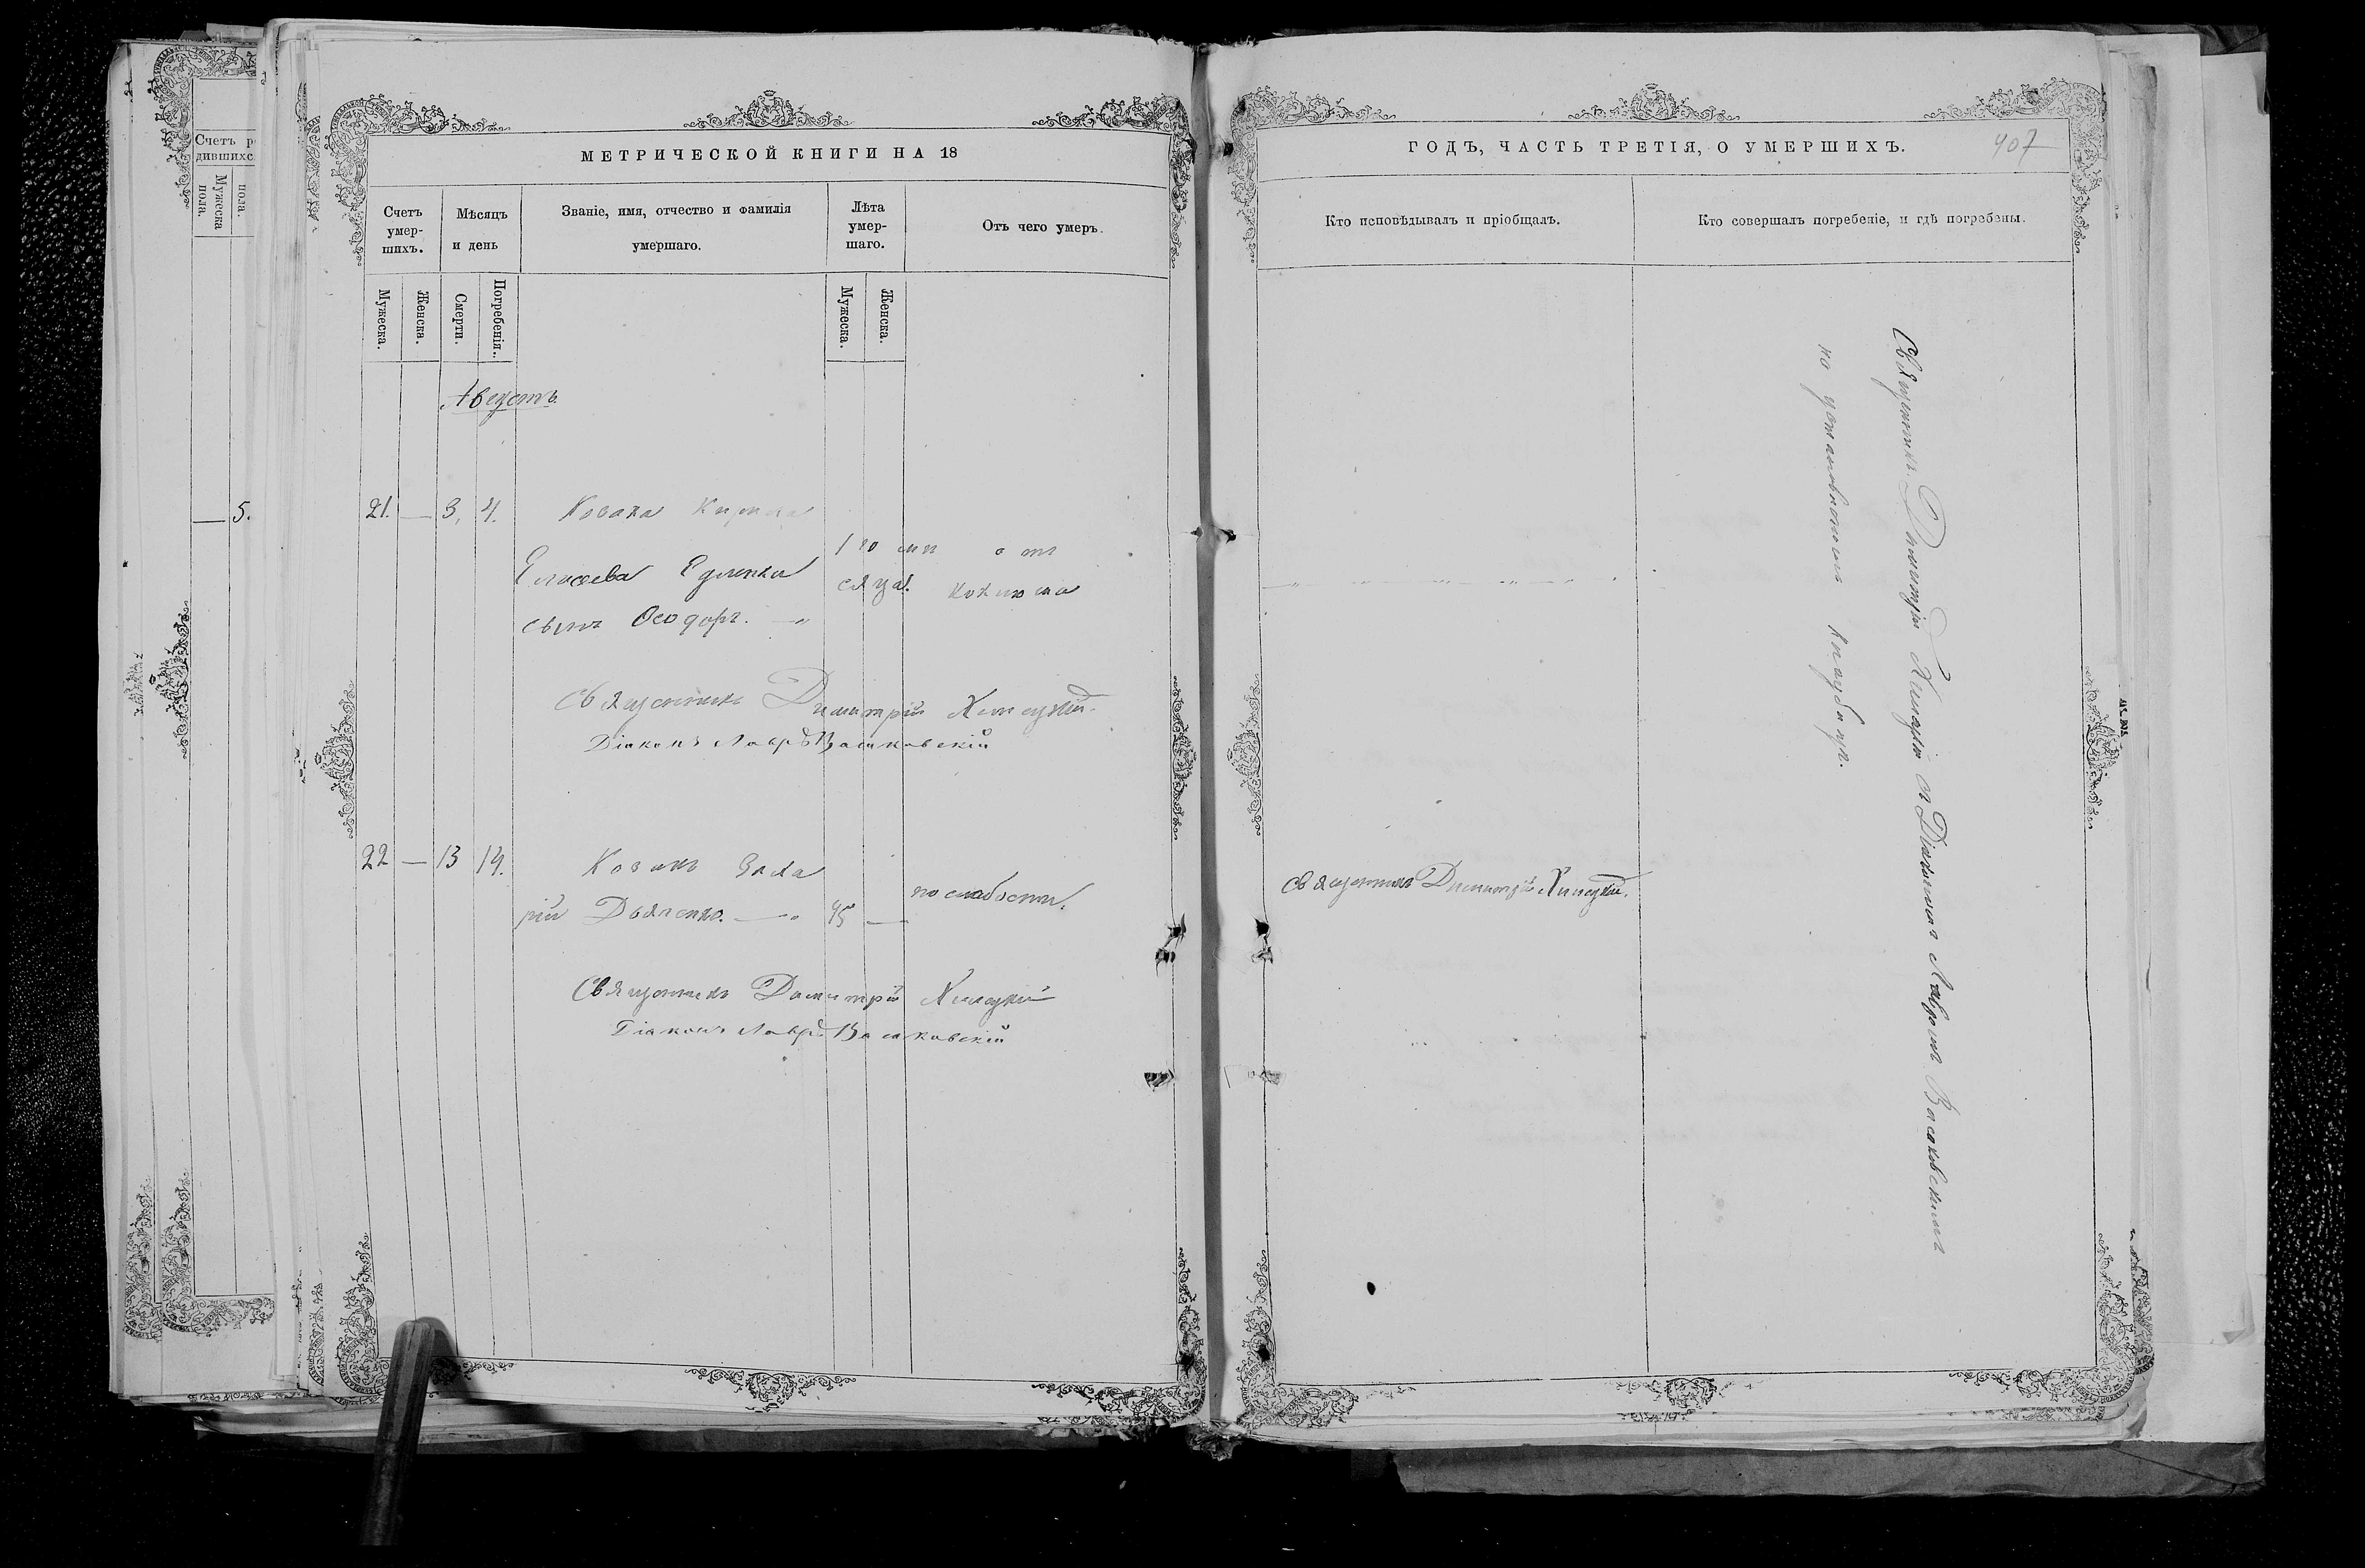 Счетъ р
дившихс
Мужеска
пола.
пола.
5.
МЕТРИЧЕСКОЙ КНИГИ НА 18
Счетъ
умер-
шихъ.
Мѣсяцъ
и день
Званіе, имя, отчество и фамилія
умершаго.
Лѣта
умер-
шаго.
Отъ чего умеръ.
Мужеска.
Женска.
Смерти.
Погребенія.
Мужеска.
Женска.
Августъ
21. — 3, 4. Козака Кирила
1 го мѣ отъ
Елисеева сяца. коклюша
сынъ Ѳеодоръ. — "
Священникъ Димитрій
Діаконъ Лавръ Васьковскій
22 — 13 14. Козакъ Зака
рій Дьяченко. — " 45 — по слабости.
Священникъ Димитрій
Діаконъ Лавръ Васьковскій
ГОДЪ, ЧАСТЬ ТРЕТІЯ, О УМЕРШИХЪ.
407
Кто исповѣдывалъ и пріобщалъ.
Кто совершалъ погребеніе, и гдѣ погребены.
Священникъ Димитрій
Священникъ Димитрій съ Діакономъ Лавромъ Васьковскимъ
на кладбищѣ.